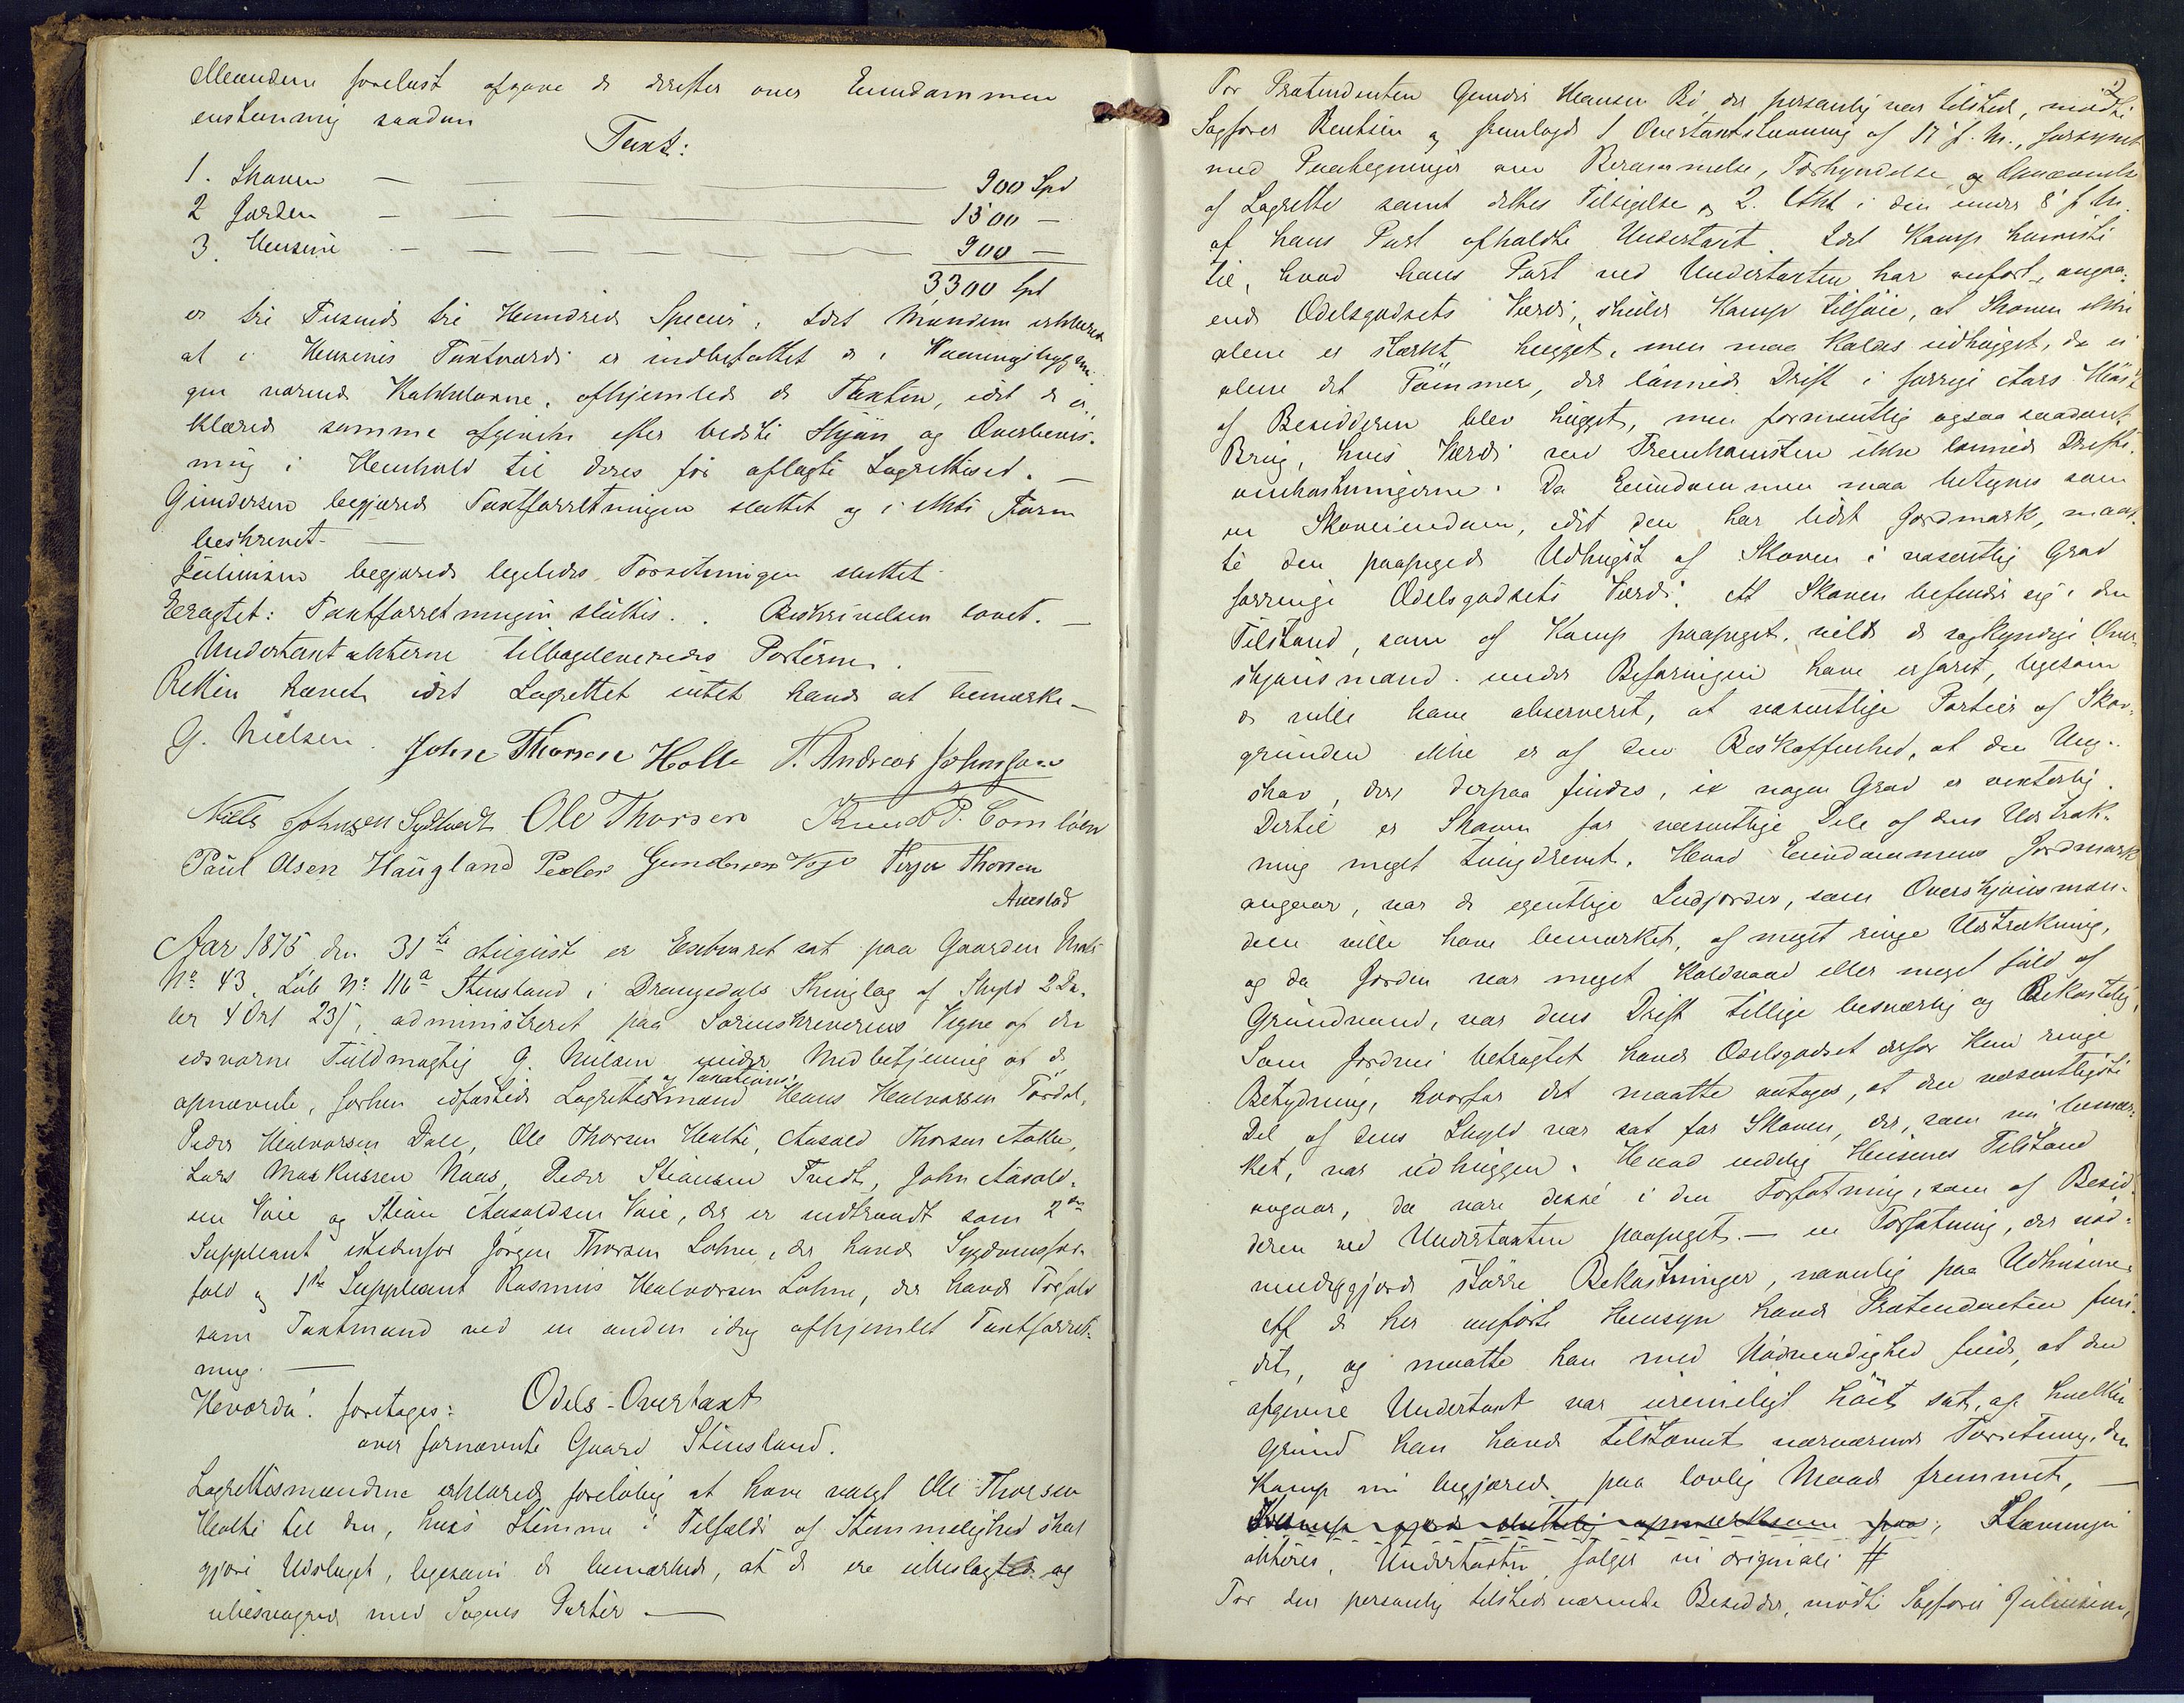 Mændene forelæst afgave de derefter over Eiendommen
enstemmig saadan
Taxt:
1. Skoven — — — 900 Spd
2 Jorden — — — 1500 —
3. Husene — — — 900 —
3300 Spd
er tre Tusinde tre Hundrede Specier. Idet Mændene erklærede
at i Husenes Taxtværdi er indbefattet de i Vaaningsbygnin-
gen værende Kakkelovne, afhjemlede de Taxten, idet de er-
klærede samme afgiven efter bedste Skjøn og Overbevis-
ning i Henhold til deres før aflagte Lagrettesed. —
Gundersen begjærede Taxtforretningen sluttet og i Akts Form
beskrevet. —
Juliusen begjærede ligeledes Forretningen sluttet
Eragtet: Taxtforretningen sluttes. Beskrivelsen lovet. —
Undertaxtakterne tilbageleveredes Parterne.
Retten hævet idet Lagrettet intet havde at bemærke —
G. Nielsen. John Thorsen Holte T. Andreas Johnsen
Niels Johnsen Sydtvedt Ole Thorsen Knud P.
Paul Olsen Haugland Peder Gundersen Terje Thorsen
Aar 1875 den 31te August er Extraret sat paa Gaarden Matr
No 43. Løb No 116a Stensland i Drangedals Thinglag af Skyld 2 Da-
ler 4 Ort 23 s, administreret paa Sorenskriverens Vegne af den
edsvorne Fuldmægtig G. Nielsen under Medbetjening af de
opnævnte, forhen edfæstede Lagrettes og Taxationsmænd Hans Halvorsen Tørdal,
Peder Halvorsen Dale, Ole Thorsen Holte, Aasold Thorsen
Lars Markussen Naas, Peder Stiansen Tvedt, John Aasold-
sen Voie og Stian Aasoldsen Voie, der er indtraadt som 2den
Suppleant istedenfor Jørgen Thorsen Lohne, der havde Sygdomsfor-
fald og 1ste Suppleant Rasmus Halvorsen Lohne, der havde Forfald
som Taxtmand ved en anden idag afhjemlet Taxtforret-
ning. —
Hvorda! foretages: Odels-Overtaxt
over fornævnte Gaard Stensland.
Lagrettesmændene erklærede foreløbig at have valgt Ole Thorsen
Holte til den, hvis Stemme i Tilfælde af Stemmelighed skal
gjøre Udslaget, ligesom de bemærkede, at de ere ubeslægtede og
ubesvogrede med Sagens Parter —
2
For Prætendenten Gunder Hansen Bø, der personlig var tilstede, mødte
Sagfører Bentsen og fremlagde 1 Overtaxtstævning af 17 f. M., forsynet
med Paategninger om Berammelse, Forkyndelse og Opnævnelse
af Lagrette samt dettes Tilsigelse og 2. Akt i den under 8 f. M.
af hans Part afholdte Undertaxt. Idet Komp. henviste
til, hvad hans Part ved Undertaxten har anført, angaa-
ende Odelsgodsets Værdi, skulde Komp tilføie, at Skoven ikke
alene er stærkt hugget, men maa kaldes udhugget, da ei
alene det Tømmer, der lønnede Drift i forrige Aars Høst
af Besidderen blev hugget, men formentlig ogsaa saadant
Brug, hvis Værdi ved Fremkomsten ikke lønnede Drifts-
omkostningerne. Da Eiendommen maa betegnes som
en Skoveiendom, idet den har lidet Jordmark, maat-
te den paapegede Udhugst af Skoven i væsentlig Grad
forringe Odelsgodsets Værdi. At Skoven befinder sig i den
Tilstand, som af Komp paapeget, vilde de sagkyndige Over-
skjønsmænd under Befaringen have erfaret, ligesom
de ville have observeret, at væsentlige Partier af Skov-
grunden ikke er af den Beskaffenhed, at den Ung-
skov, der derpaa findes, i nogen Grad er voxterlig.
Dertil er Skoven for væsentlige Dele af dens Udstræk-
ning meget tungdrevet. Hvad Eiendommens Jordmark
angaar, var de egentlige Indjorder, som Overskjønsmæn-
dene ville have bemærket, af meget ringe Udstrækning,
og da Jorden var meget koldvaad eller meget fuld af
Grundvand, var dens Drift tillige besværlig og bekostelig,
Som Jordvei betragtet havde Odelsgodset derfor kun ringe
Betydning, hvorfor det maatte antages, at den væsentligste
Del af dens Skyld var sat for Skoven, der, som nu bemær-
ket, var udhuggen. Hvad endelig Husenes Tilstand
angaar, da vare disse i den Forfatning, som af Besid-
deren ved Undertaxten paapeget. — en Forfatning, der nød-
vendiggjorde større Bekostninger, navnlig paa Udhusene.
Af de her anførte Hensyn havde Prætendenten fun-
det, og maatte han med Nødvendighed finde, at den
afgivne Undertaxt var urimeligt høit sat, af hvilken
Grund han havde tilstævnet nærværende Forretning, den
Komp nu begjærede paa lovlig Maade fremmet, —
Komp gjorde sluttelig opmærksom paa, Stævningen
akteres, Undertaxten følger in originali #
For den personlig tilstedeværende Besidder, mødte Sagfører Juliusen,